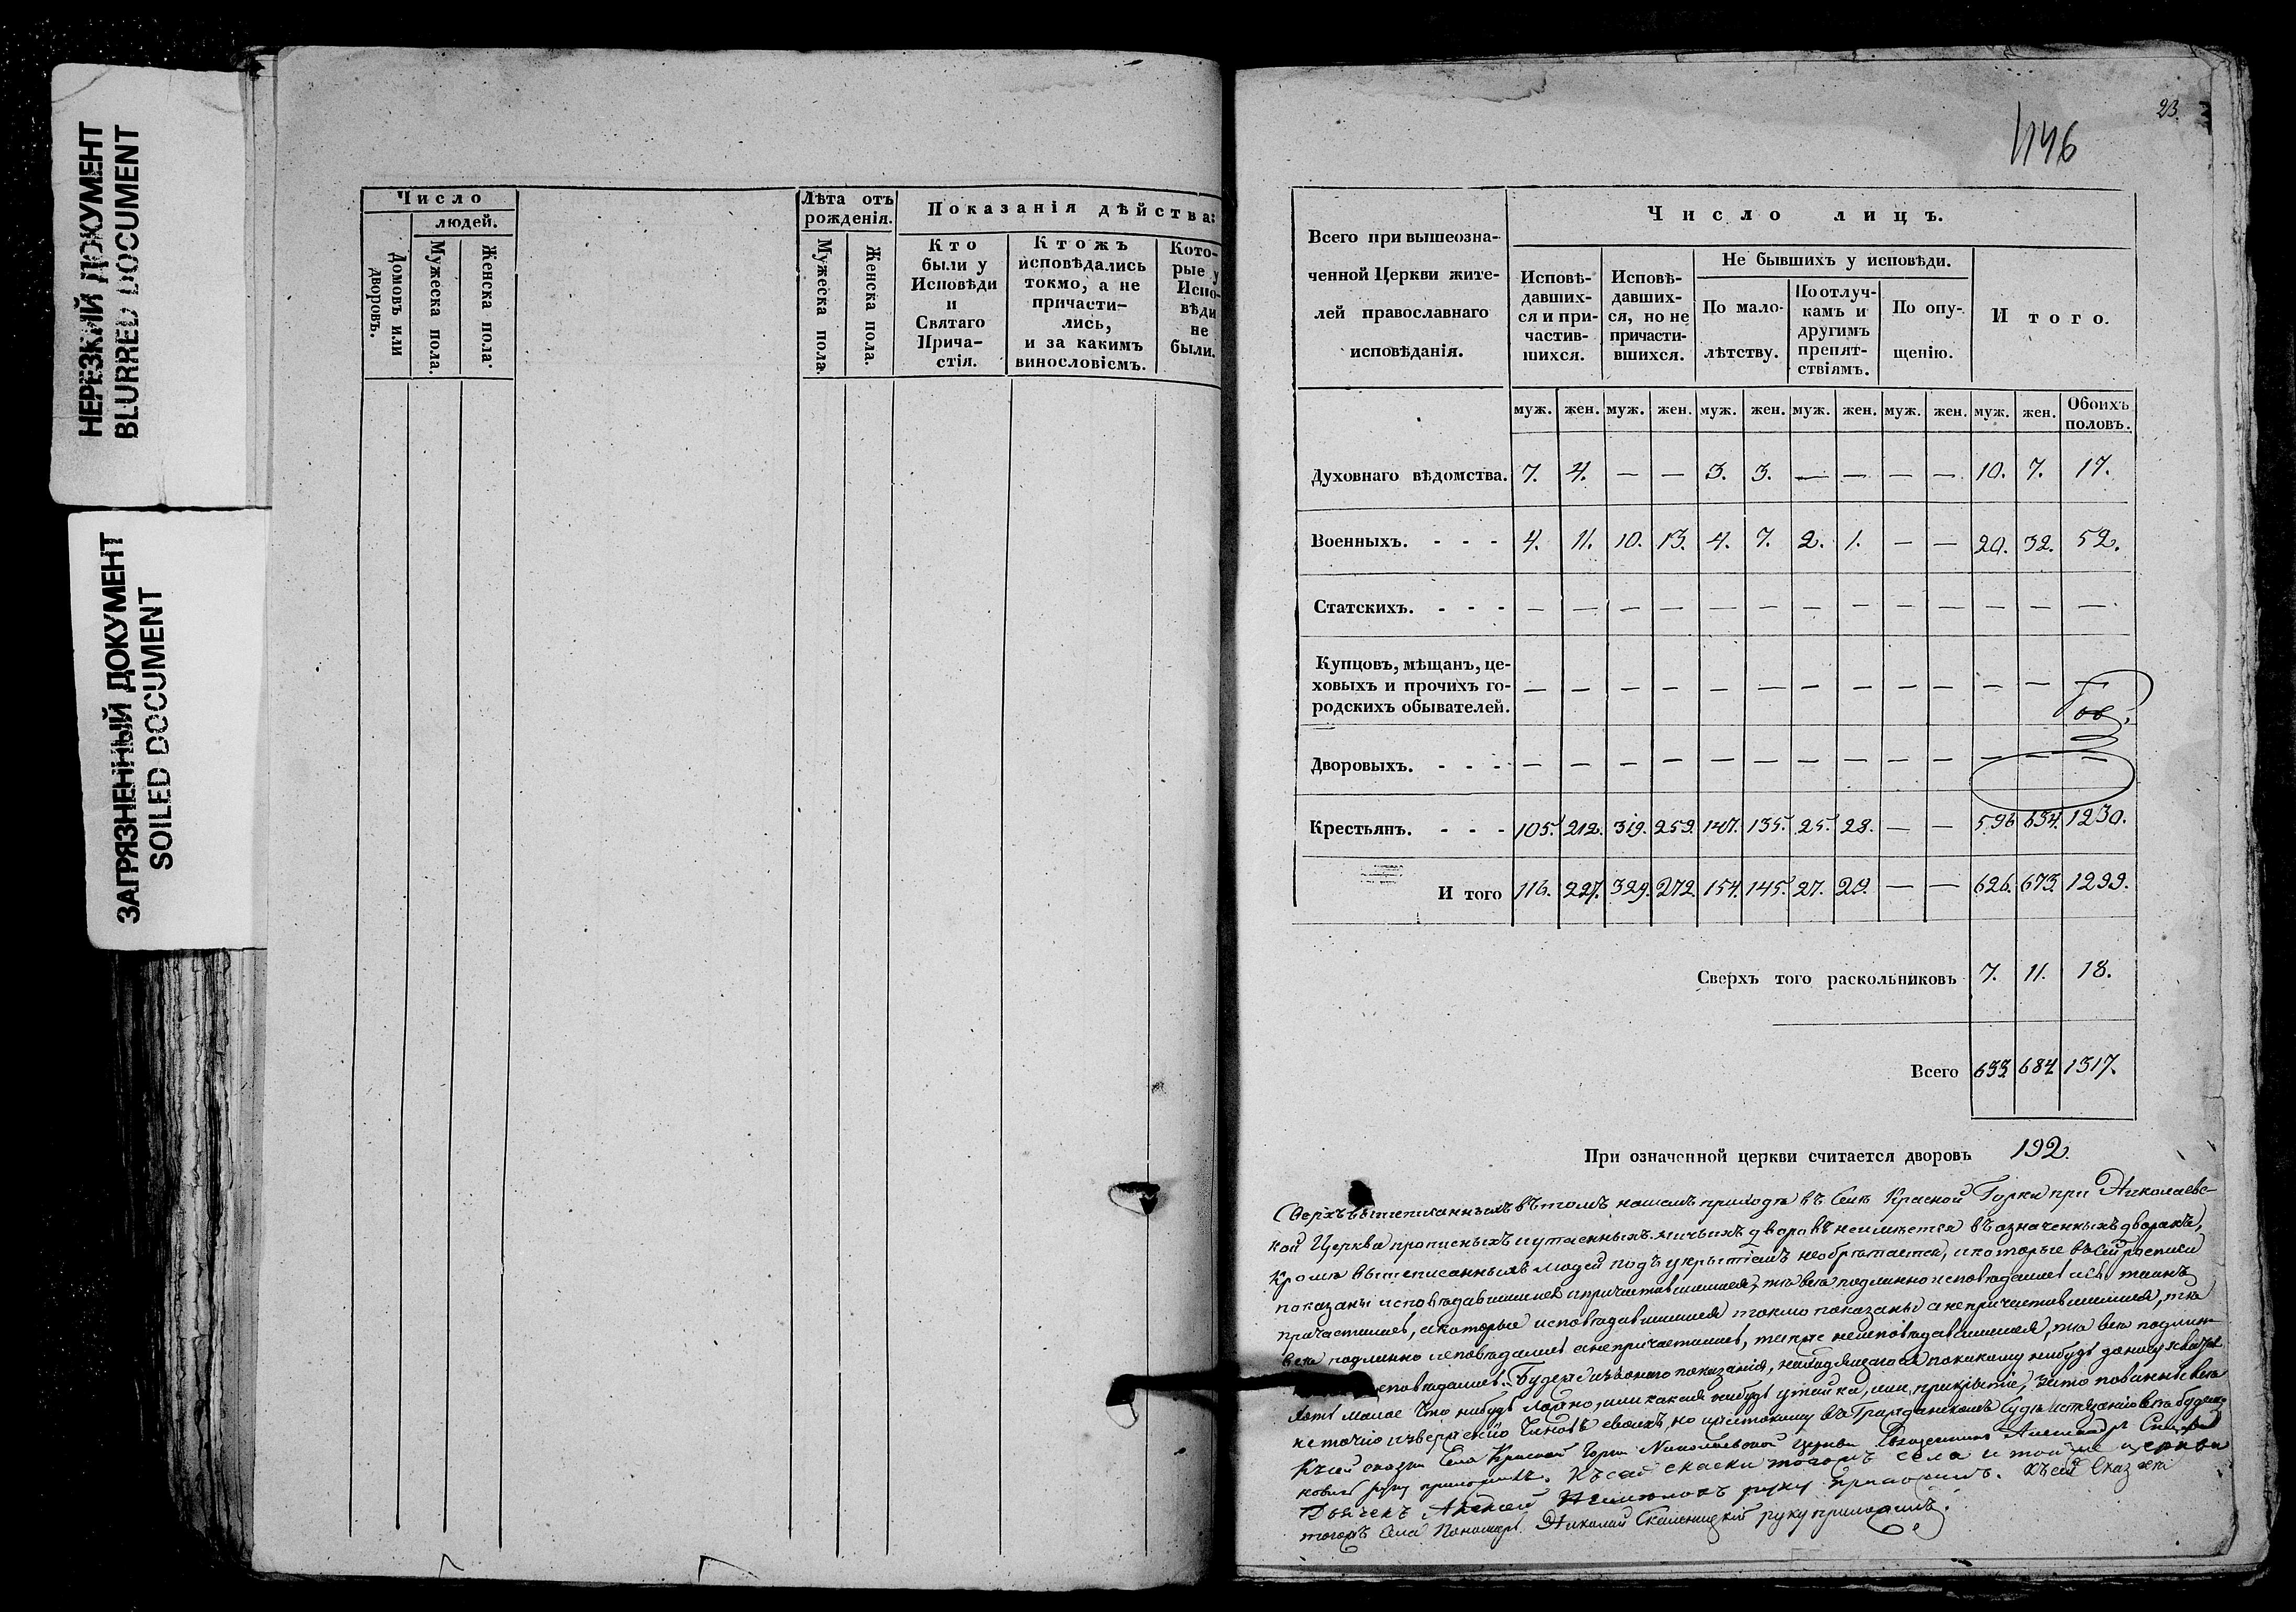 НЕРЕЗКИЙ ДОКУМЕНТ
BLURRED DOCUMENT
ЗАГРЯЗНЕННЫЙ ДОКУМЕНТ
SOILED DOCUMENT
Число
людей.
Домовъ или дворовъ.
Мужеска пола.
Женска пола.
Лѣта отъ
рожденія.
Мужеска пола.
Женска пола.
Показанія дѣйства:
Кто
были у
Исповѣди
и
Святаго
Прича-
стія.
Ктожъ
исповѣдались
токмо, а не
причасти-
лись,
и за какимъ
винословіемъ.
Кото-
рые у
Испо-
вѣди
не
были.
23.
1146
Всего при вышеозна-
ченной Церкви жите-
лей православнаго
исповѣданія.
Число лицъ.
Исповѣ-
давших-
ся и при-
частив-
шихся.
Исповѣ-
давших-
ся, но не
причасти-
вшихся.
Не бывшихъ у исповѣди.
По мало-
лѣтству.
По отлуч-
камъ и
другимъ
препят-
ствіямъ.
По опу-
щенію.
Итого.
муж. жен. муж. жен. муж. жен. муж. жен. муж. жен. муж. жен. Обоихъ
половъ.
Духовнаго вѣдомства. 7. 4. — — 3. 3. — — — — 10. 7. 17.
Военныхъ. - - - 4. 11. 10. 13. 4. 7. 2. 1. — — 20. 32. 52.
Статскихъ. - - - — — — — — — — — — — — — —
Купцовъ, мѣщанъ, це-
ховыхъ и прочихъ го- — — — — — — — — — — — — —
родскихъ обывателей.
Дворовыхъ. - - - — — — — — — — — — — — — —
Крестьянъ. - - - 105. 212. 319. 259. 147. 135. 25. 28. — — 596 634. 1230.
И того 116. 227. 329. 272. 154. 145. 27. 29. — — 626. 673. 1299.
Сверхъ того раскольниковъ 7. 11. 18.
Всего 633. 684. 1317.
При означенной церкви считается дворовъ 192.
Сверхъ вышеписанныхъ въ томъ нашемъ приходѣ въ Селѣ Красной Горки при Николаевс-
кой Церкви прописныхъ и утаенныхъ ничьихъ дворовъ неимѣется въ означенныхъ дворахъ,
Кромѣ вышеписанныхъ людей подъ укрытіемъ необрѣтается, и которые въ сей росписи
показаны исповѣдавшимися и причастившимися, тѣ всѣ подлинно исповѣдались и Св. таинъ
причастились, а которые исповѣдавшимися токмо показаны а непричастившимися, тѣ
всѣ подлинно исповѣдались а непричастились, также неисповѣдавшимися, тѣ всѣ подлин
исповѣдались. Буде изъ онаго показанія, по какому нибудь доносу
хоть малое что нибудь ложно, или какая нибудь утайка, или прикрытіе, зато повинны всѣ
не точію изверженію Чиновъ своихъ, но и жестокому въ Гражданскомъ Судѣ истязанію
Къ сей сказки Села Красной Горки Николаевской церкви Священникъ Александръ
руку приложилъ. Къ сей сказки тогожъ села и тойже церкви
Дьячекъ Алексей руку приложилъ. Къ сей Сказкѣ
тогожъ Села Пономарь Николай руку приложилъ.